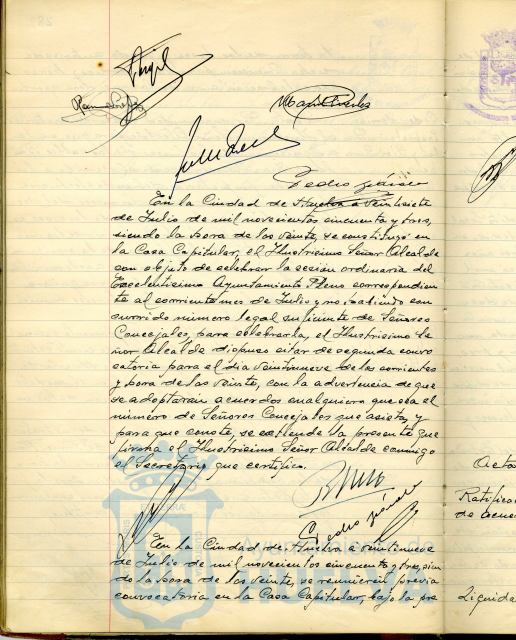 Pedro Jiménez
En la Ciudad de Huelva a veintisiete
de Julio de mil novecientos cincuenta y tres,
siendo la hora de las veinte, se constituyó en
la Casa Capitular, el Ilustrísimo Señor Alcalde
con objeto de celebrar la sesión ordinaria del
Excelentísimo Ayuntamiento Pleno correspondien
te al corriente mes de Julio y no habiendo con
currido número legal suficiente de Señores
Concejales, para celebrarla, el Ilustrísimo Se
ñor Alcalde dispuso citar de segunda convo
catoria para el día veintinueve de los corrientes
y hora de las veinte, con la advertencia de que
se adoptarán acuerdos cualquiera que sea el
número de Señores Concejales que asista, y
para que conste, se extiende la presente que
firma el Ilustrísimo Señor Alcalde conmigo
el Secretario que certifico.
Pedro Jiménez
En la Ciudad de Huelva a veintinueve
de Julio de mil novecientos cincuenta y tres, sien
do la hora de las veinte, se reunieron previa
convocatoria en la Casa Capitular, bajo la pre
Ayuntamiento de
Acta
Ratifica
de acue
Liquida